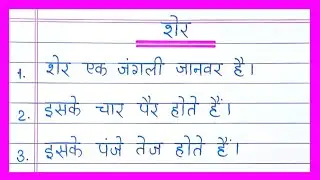 शेर
1. शेर एक जंगली जानवर है।
2. इसके चार पैर होते हैं।
3. इसके पंजे तेज होते हैं।